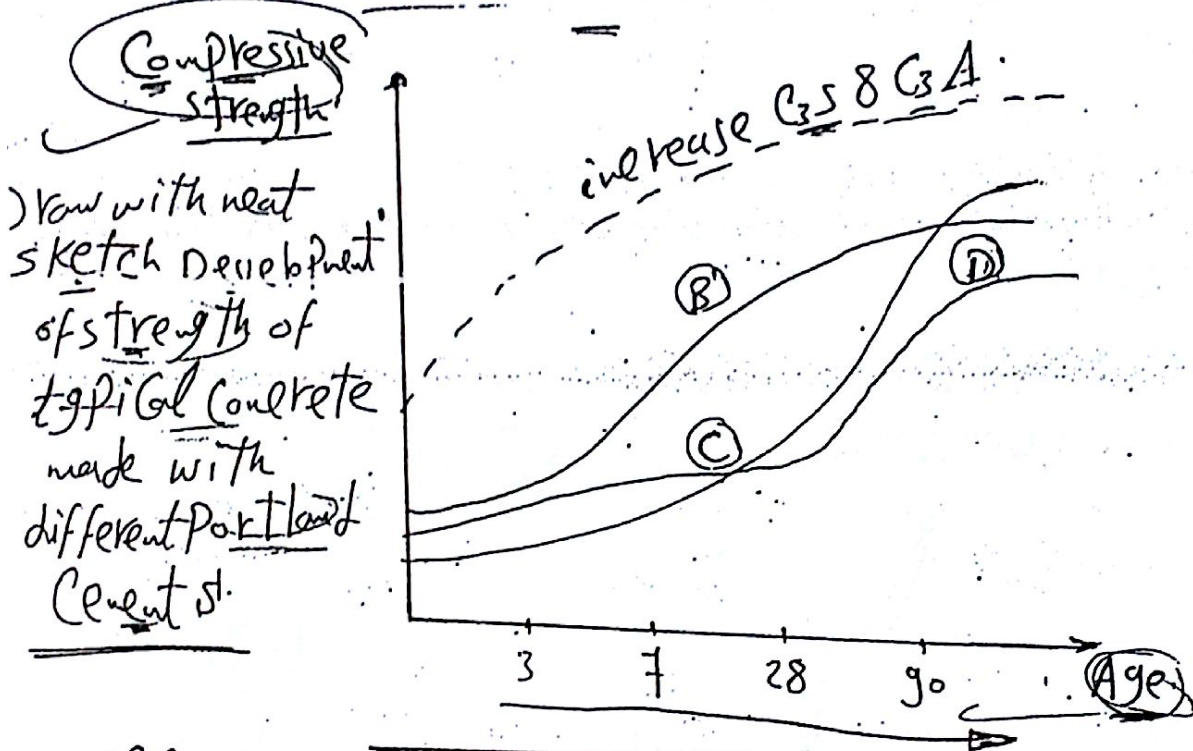 Compressive
strength
Draw with neat
sketch Development
of strength of
typical Concrete
made with
different Portland
Cement s.
increase C3S & C3A.
B
C
D
3 7 28 90 Age